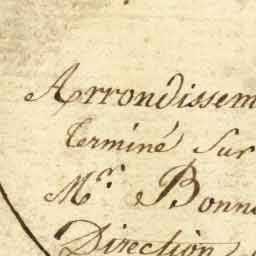 Arrondissem
Terminé Sur
Mr. Bonn
Direction